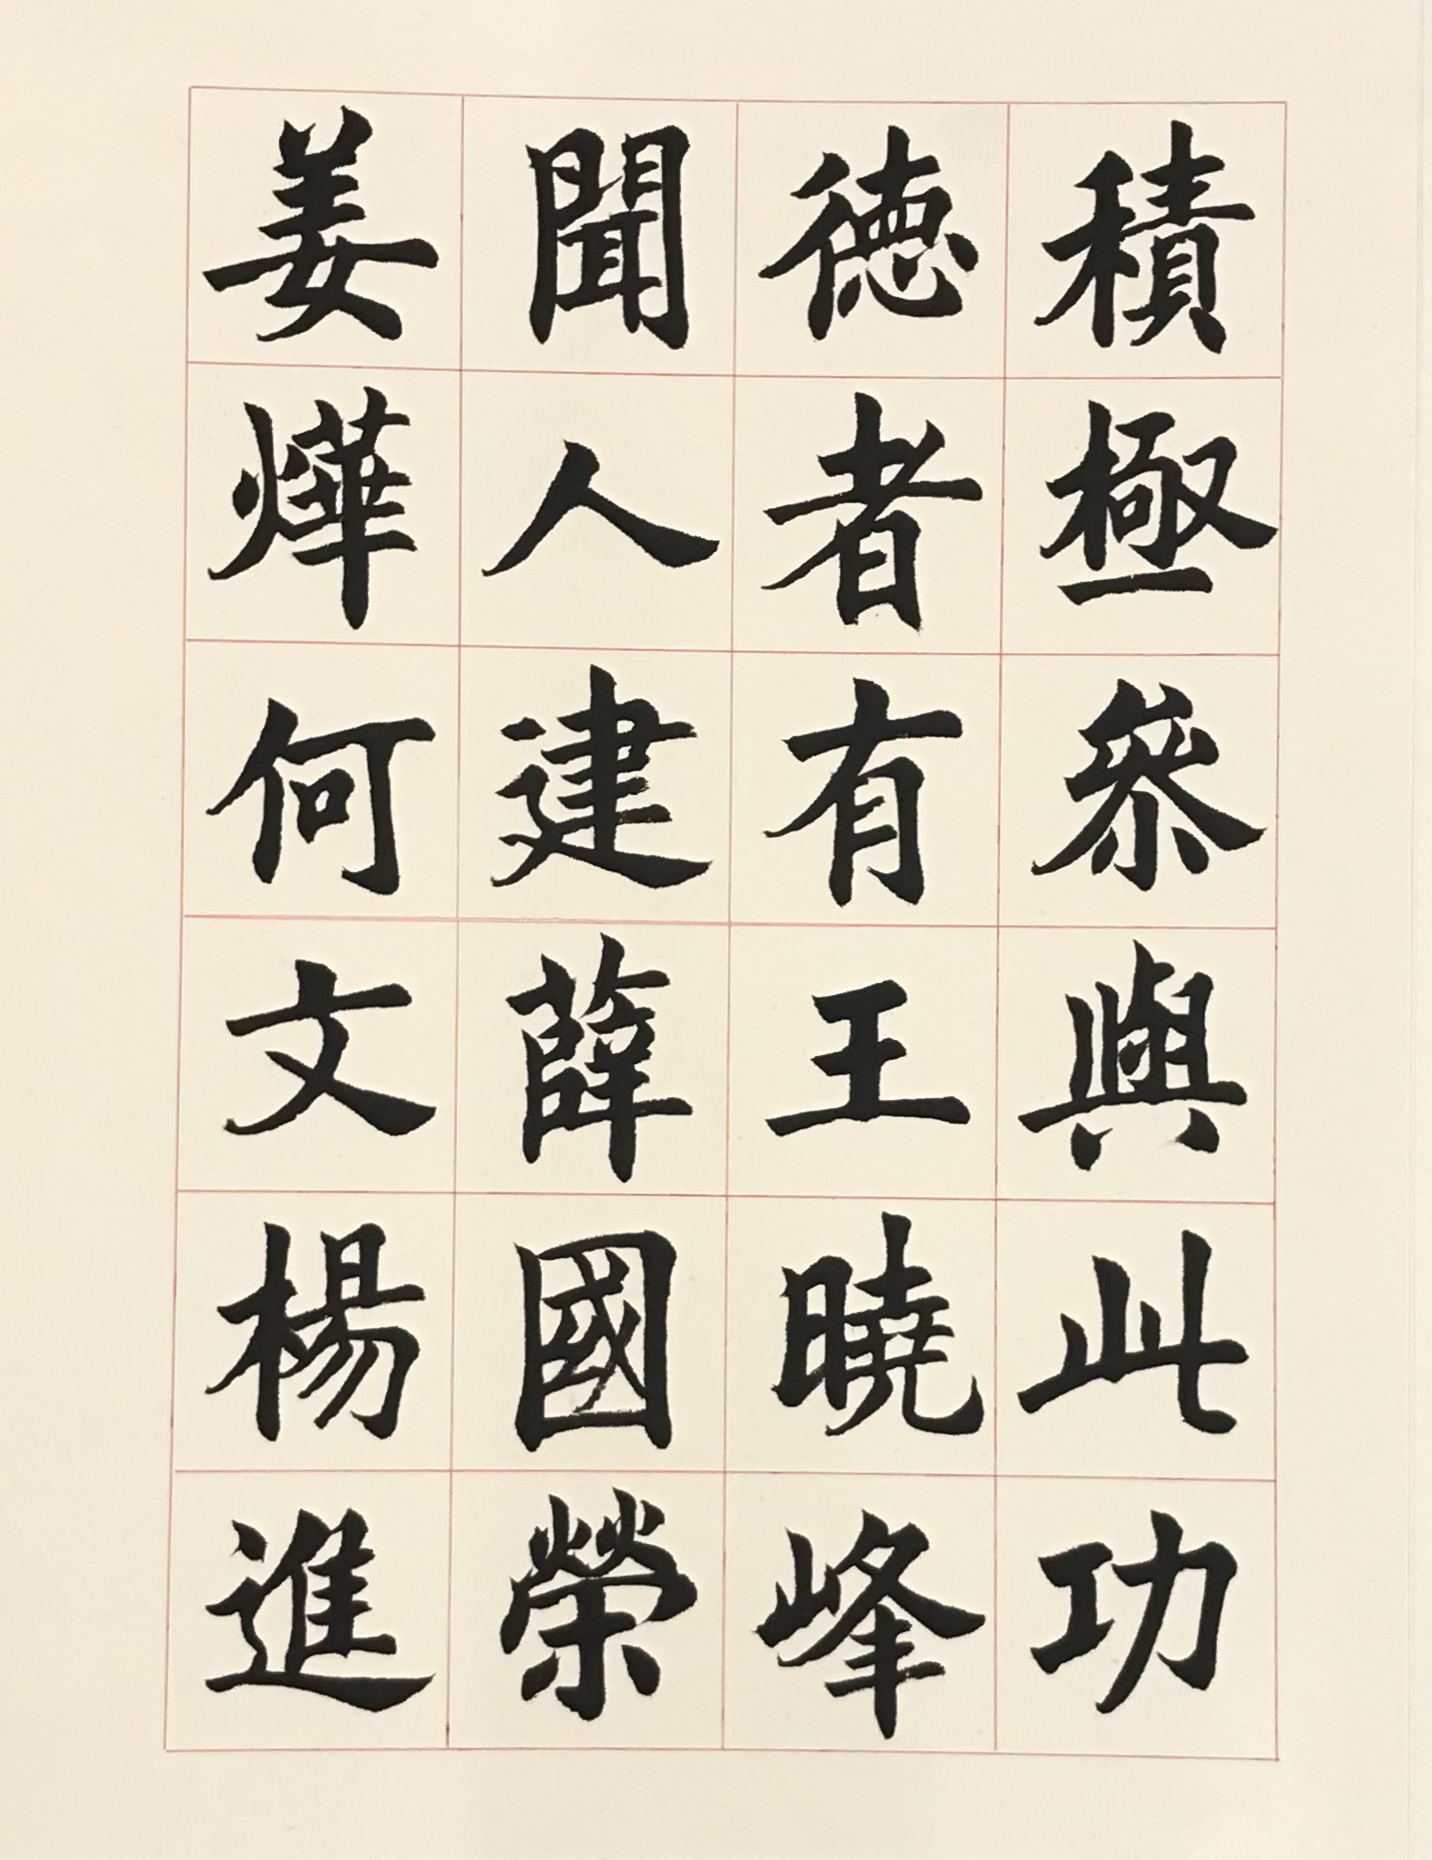 積極參與此功
德者有王曉峰
聞人建薛國榮
姜燁何文楊進